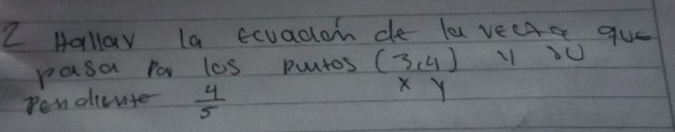 2 Hallar la ecuación de la recta que
pasa por los puntos (3,4) y su
x y
Pendiente 4/5